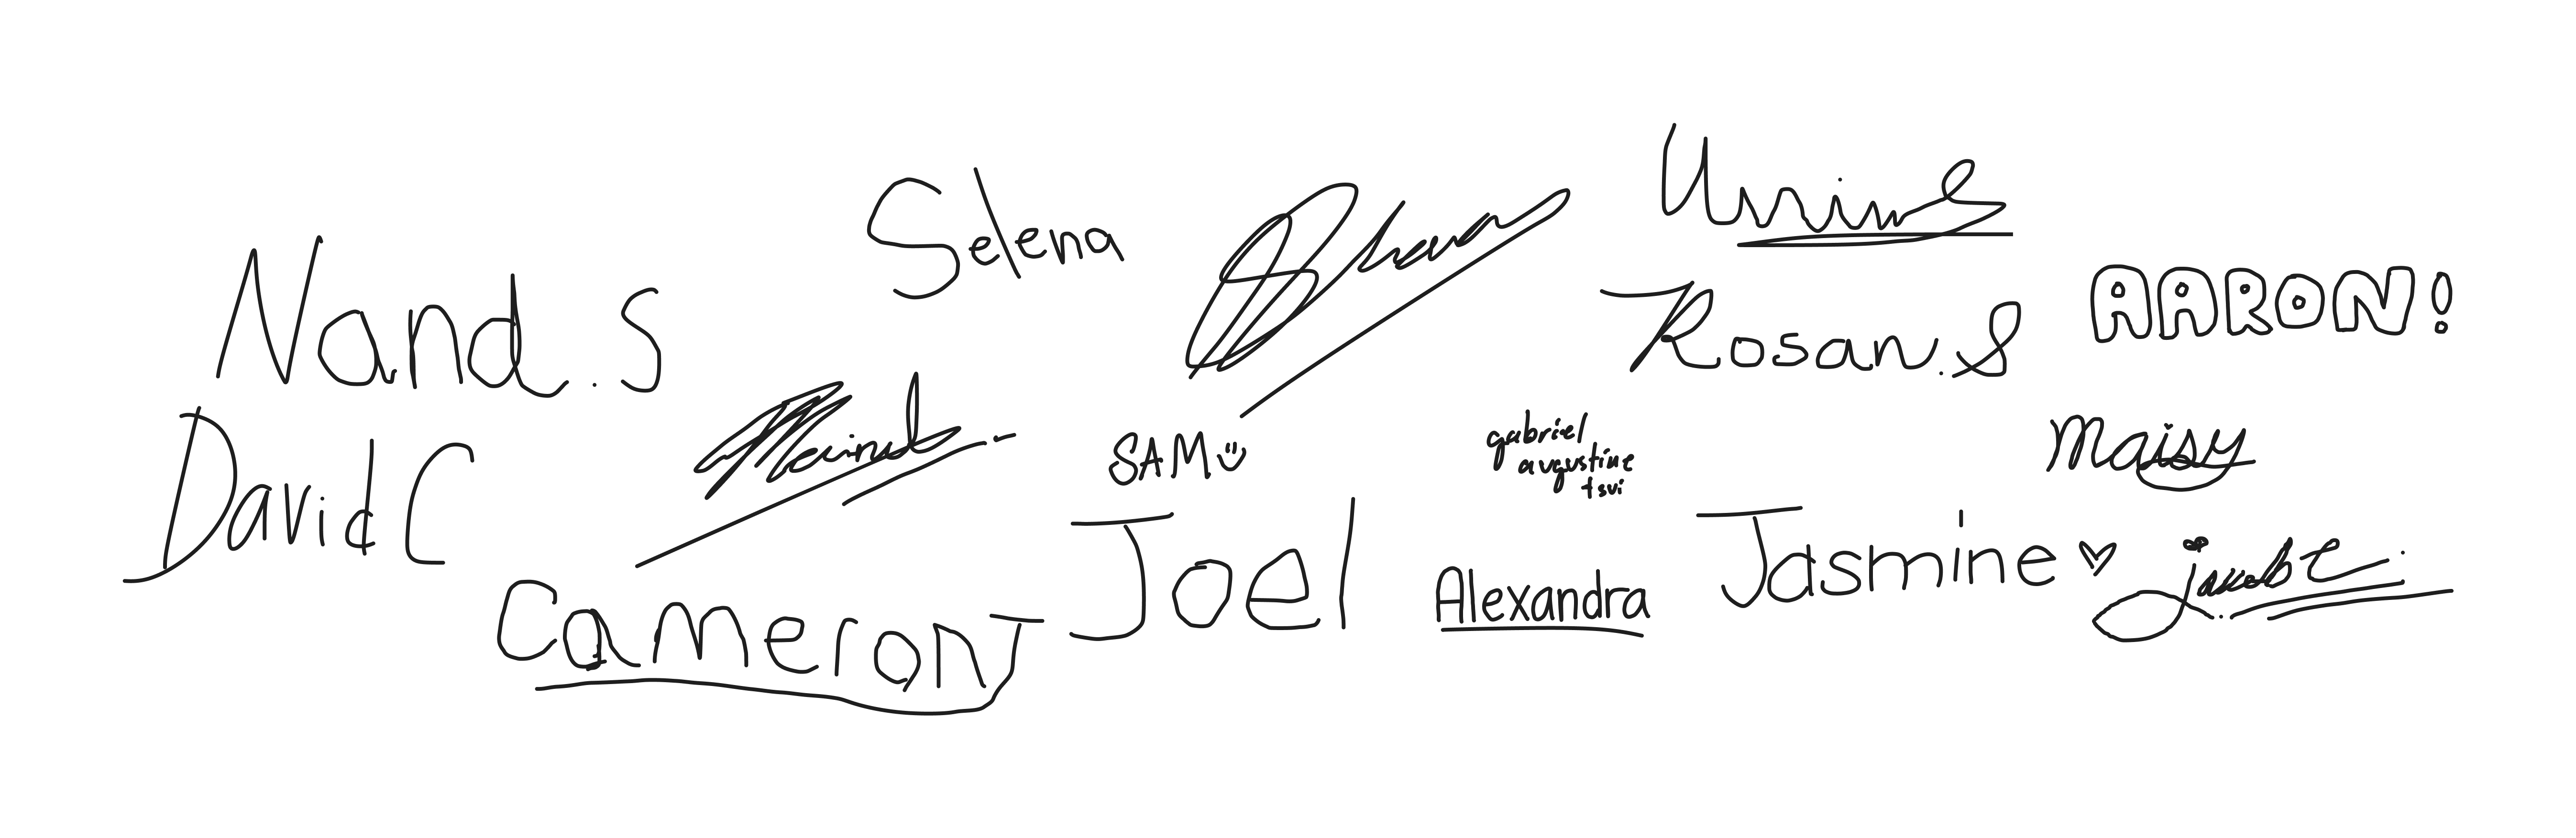 Selena
Nand.S
Rosan.S
AARON!
David C
SAM
gabriel
augustine
tsui
Maisy
Cameron J
Joel
Alexandra
Jasmine